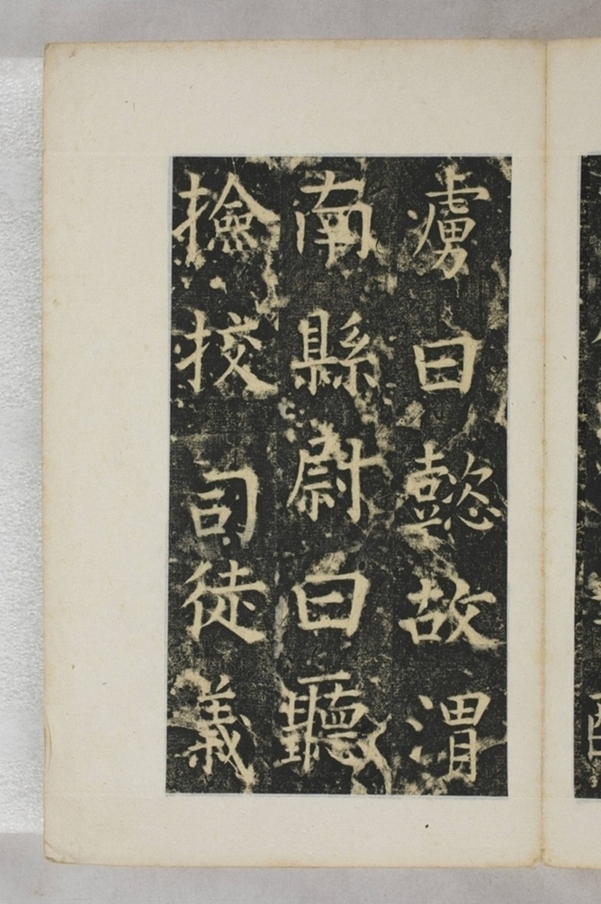 虜曰懿故渭
南縣尉曰聽
撿挍司徒義